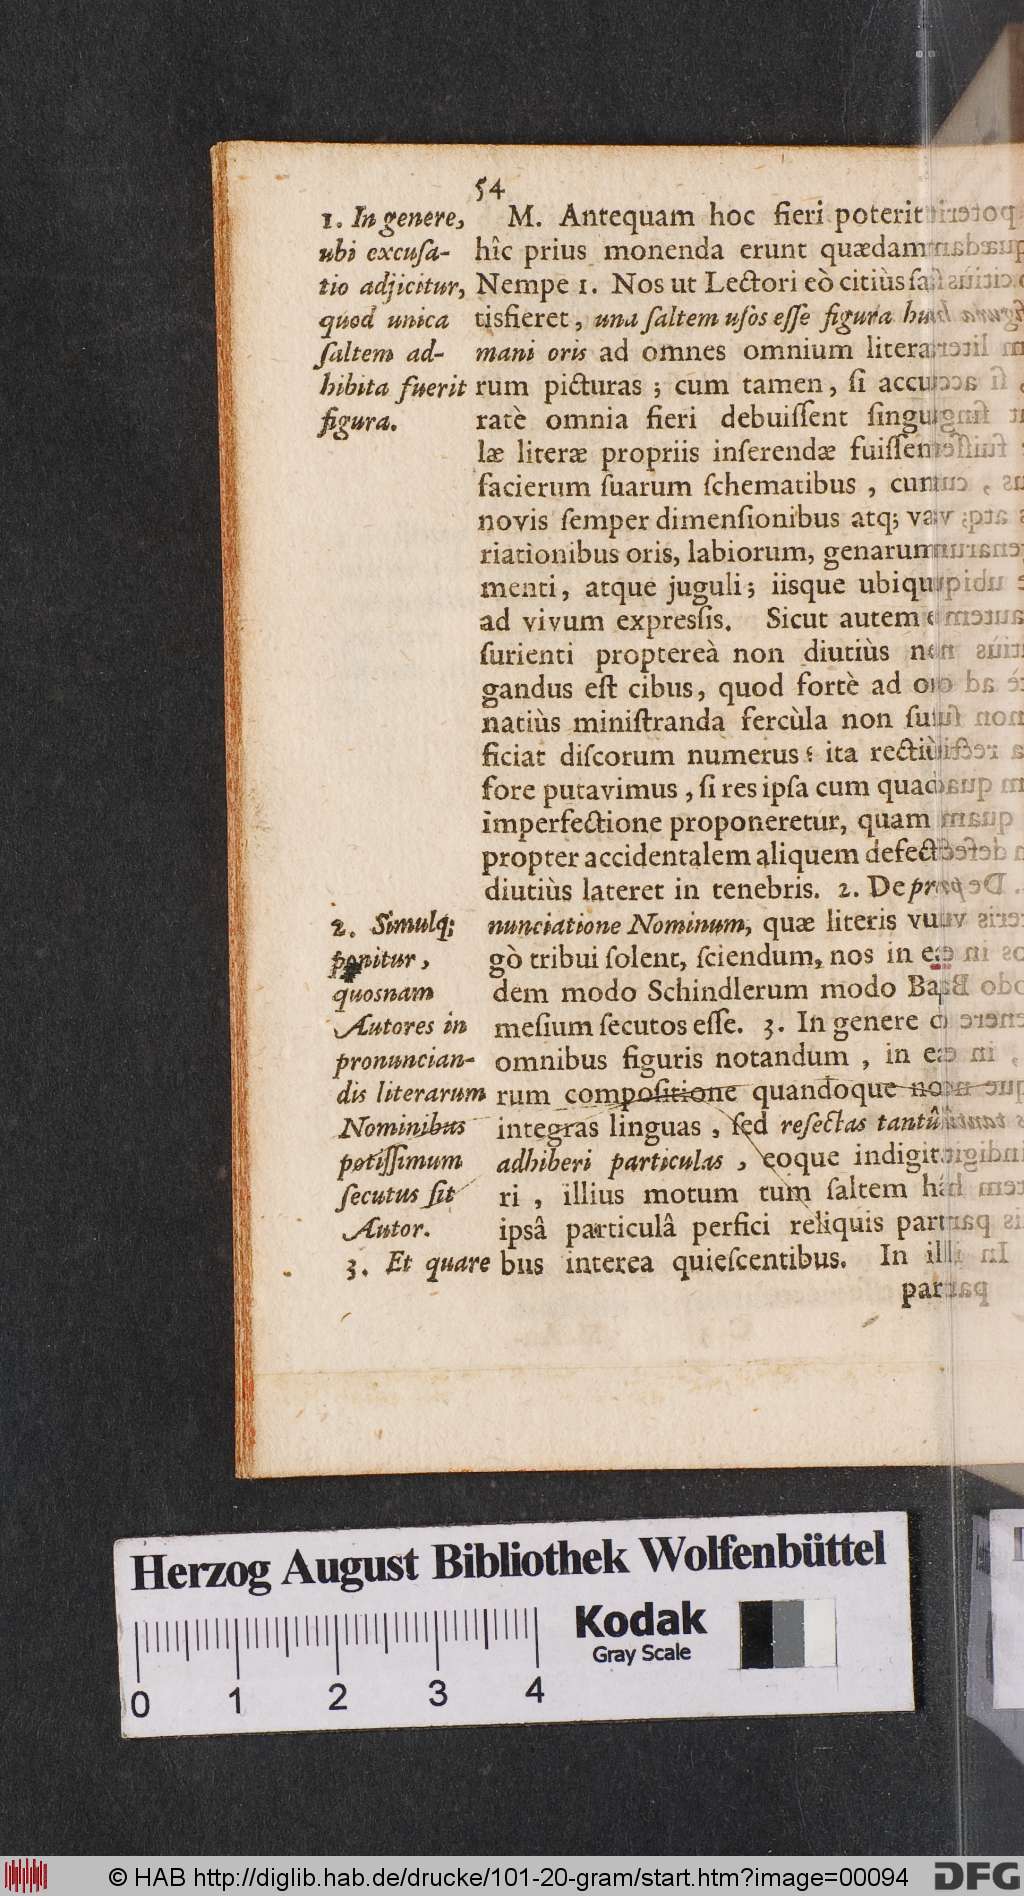 54
1. In genere,
ubi excuſa-
tio adjicitur,
quod unica
ſaltem ad-
hibita fuerit
figura.
M. Antequam hoc fieri poterit
hîc prius monenda erunt quædam
Nempe 1. Nos ut Lectori eò citiùs ſa
tisfieret, una ſaltem uſos eſſe figura hu
mani oris ad omnes omnium litera
rum picturas; cum tamen, ſi accu
ratè omnia fieri debuiſſent ſingu
læ literæ propriis inſerendæ fuiſſen
facierum ſuarum ſchematibus, cum
novis ſemper dimenſionibus atq; va
riationibus oris, labiorum, genarum
menti, atque juguli; iisque ubiqu
ad vivum expreſſis. Sicut autem
ſurienti proptereà non diutiùs ne
gandus eſt cibus, quod fortè ad or
natiùs miniſtranda fercùla non ſu
ficiat diſcorum numerus: ita rectiù
fore putavimus, ſi res ipſa cum qua
imperfectione proponeretur, quam
propter accidentalem aliquem defect
diutiùs lateret in tenebris. 2. De pro
2. Simulq;
ponitur,
quosnam
Autores in
pronuncian-
dis literarum
Nominibus
potiſſimum
ſecutus ſit
Autor.
3. Et quare
nunciatione Nominum, quæ literis vu
gò tribui ſolent, ſciendum, nos in
dem modo Schindlerum modo Ba
meſium ſecutos eſſe. 3. In genere
omnibus figuris notandum, in ea
rum compoſitione quandoque non
integras linguas, ſed reſectas tantû
adhiberi particulas, eoque indigita
ri, illius motum tum ſaltem hâc
ipsâ particulâ perfici reliquis parti
bus interea quieſcentibus. In ill
par
Herzog August Bibliothek Wolfenbüttel
Kodak
Gray Scale
0 1 2 3 4
© HAB http://diglib.hab.de/drucke/101-20-gram/start.htm?image=00094
DFG